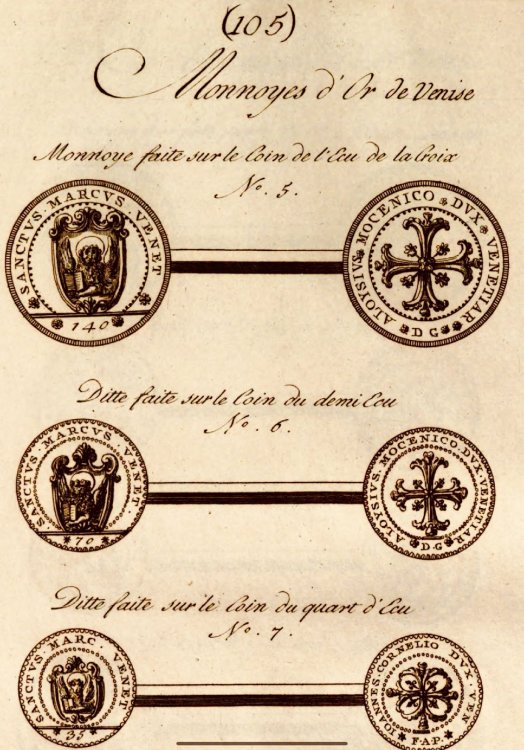 (105)
Monnoyes d'Or de Venise
Monnoye faite sur le Coin de l'Ecu de la Croix
No. 5.
SANCTVS. MARCVS. VENET
140
ALOYSIVS. MOCENICO DVX VENETIAR
D G
Ditte faite sur le Coin du demi Ecu
No. 6.
SANCTVS. MARCVS VENET
70
ALOYSIVS. MOCENICO. DVX. VENETIAR
D.G
Ditte faite sur le Coin du quart d'Ecu
No. 7.
SANCTVS MARC. VENET
35
IOANNES. CORNELIO DVX. VEN
F.A.P.